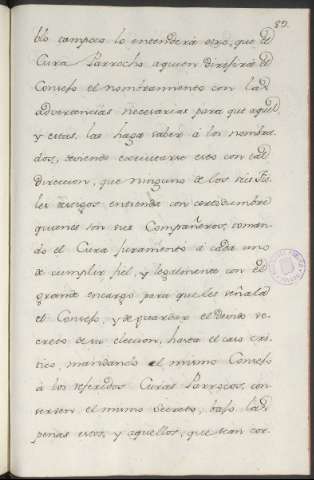 89.
blo tampoco lo entenderá otro, que el
Cura Parrocho aquien dirigirá el
Consejo el nombramiento con las
advertencias necesarias para que aquel
y estas las haga saber á los nombra-
dos, deviendo executarse esto con tal
direccion, que ninguno de los seis Fie-
les testigos entienda con certidumbre
quienes son sus Compañeros, toman-
do el Cura juramento á cada uno
de cumplir fiel, y legalmente con el
grande encargo para que les señala
el Consejo, y de guardar el devido se-
creto de su eleccion, hasta el caso cri-
tico, mandando el mismo Consejo
á los referidos Curas Parrocos, con-
serven el mismo Secreto, bajo las
penas estos, y aquellos, que sean cor-